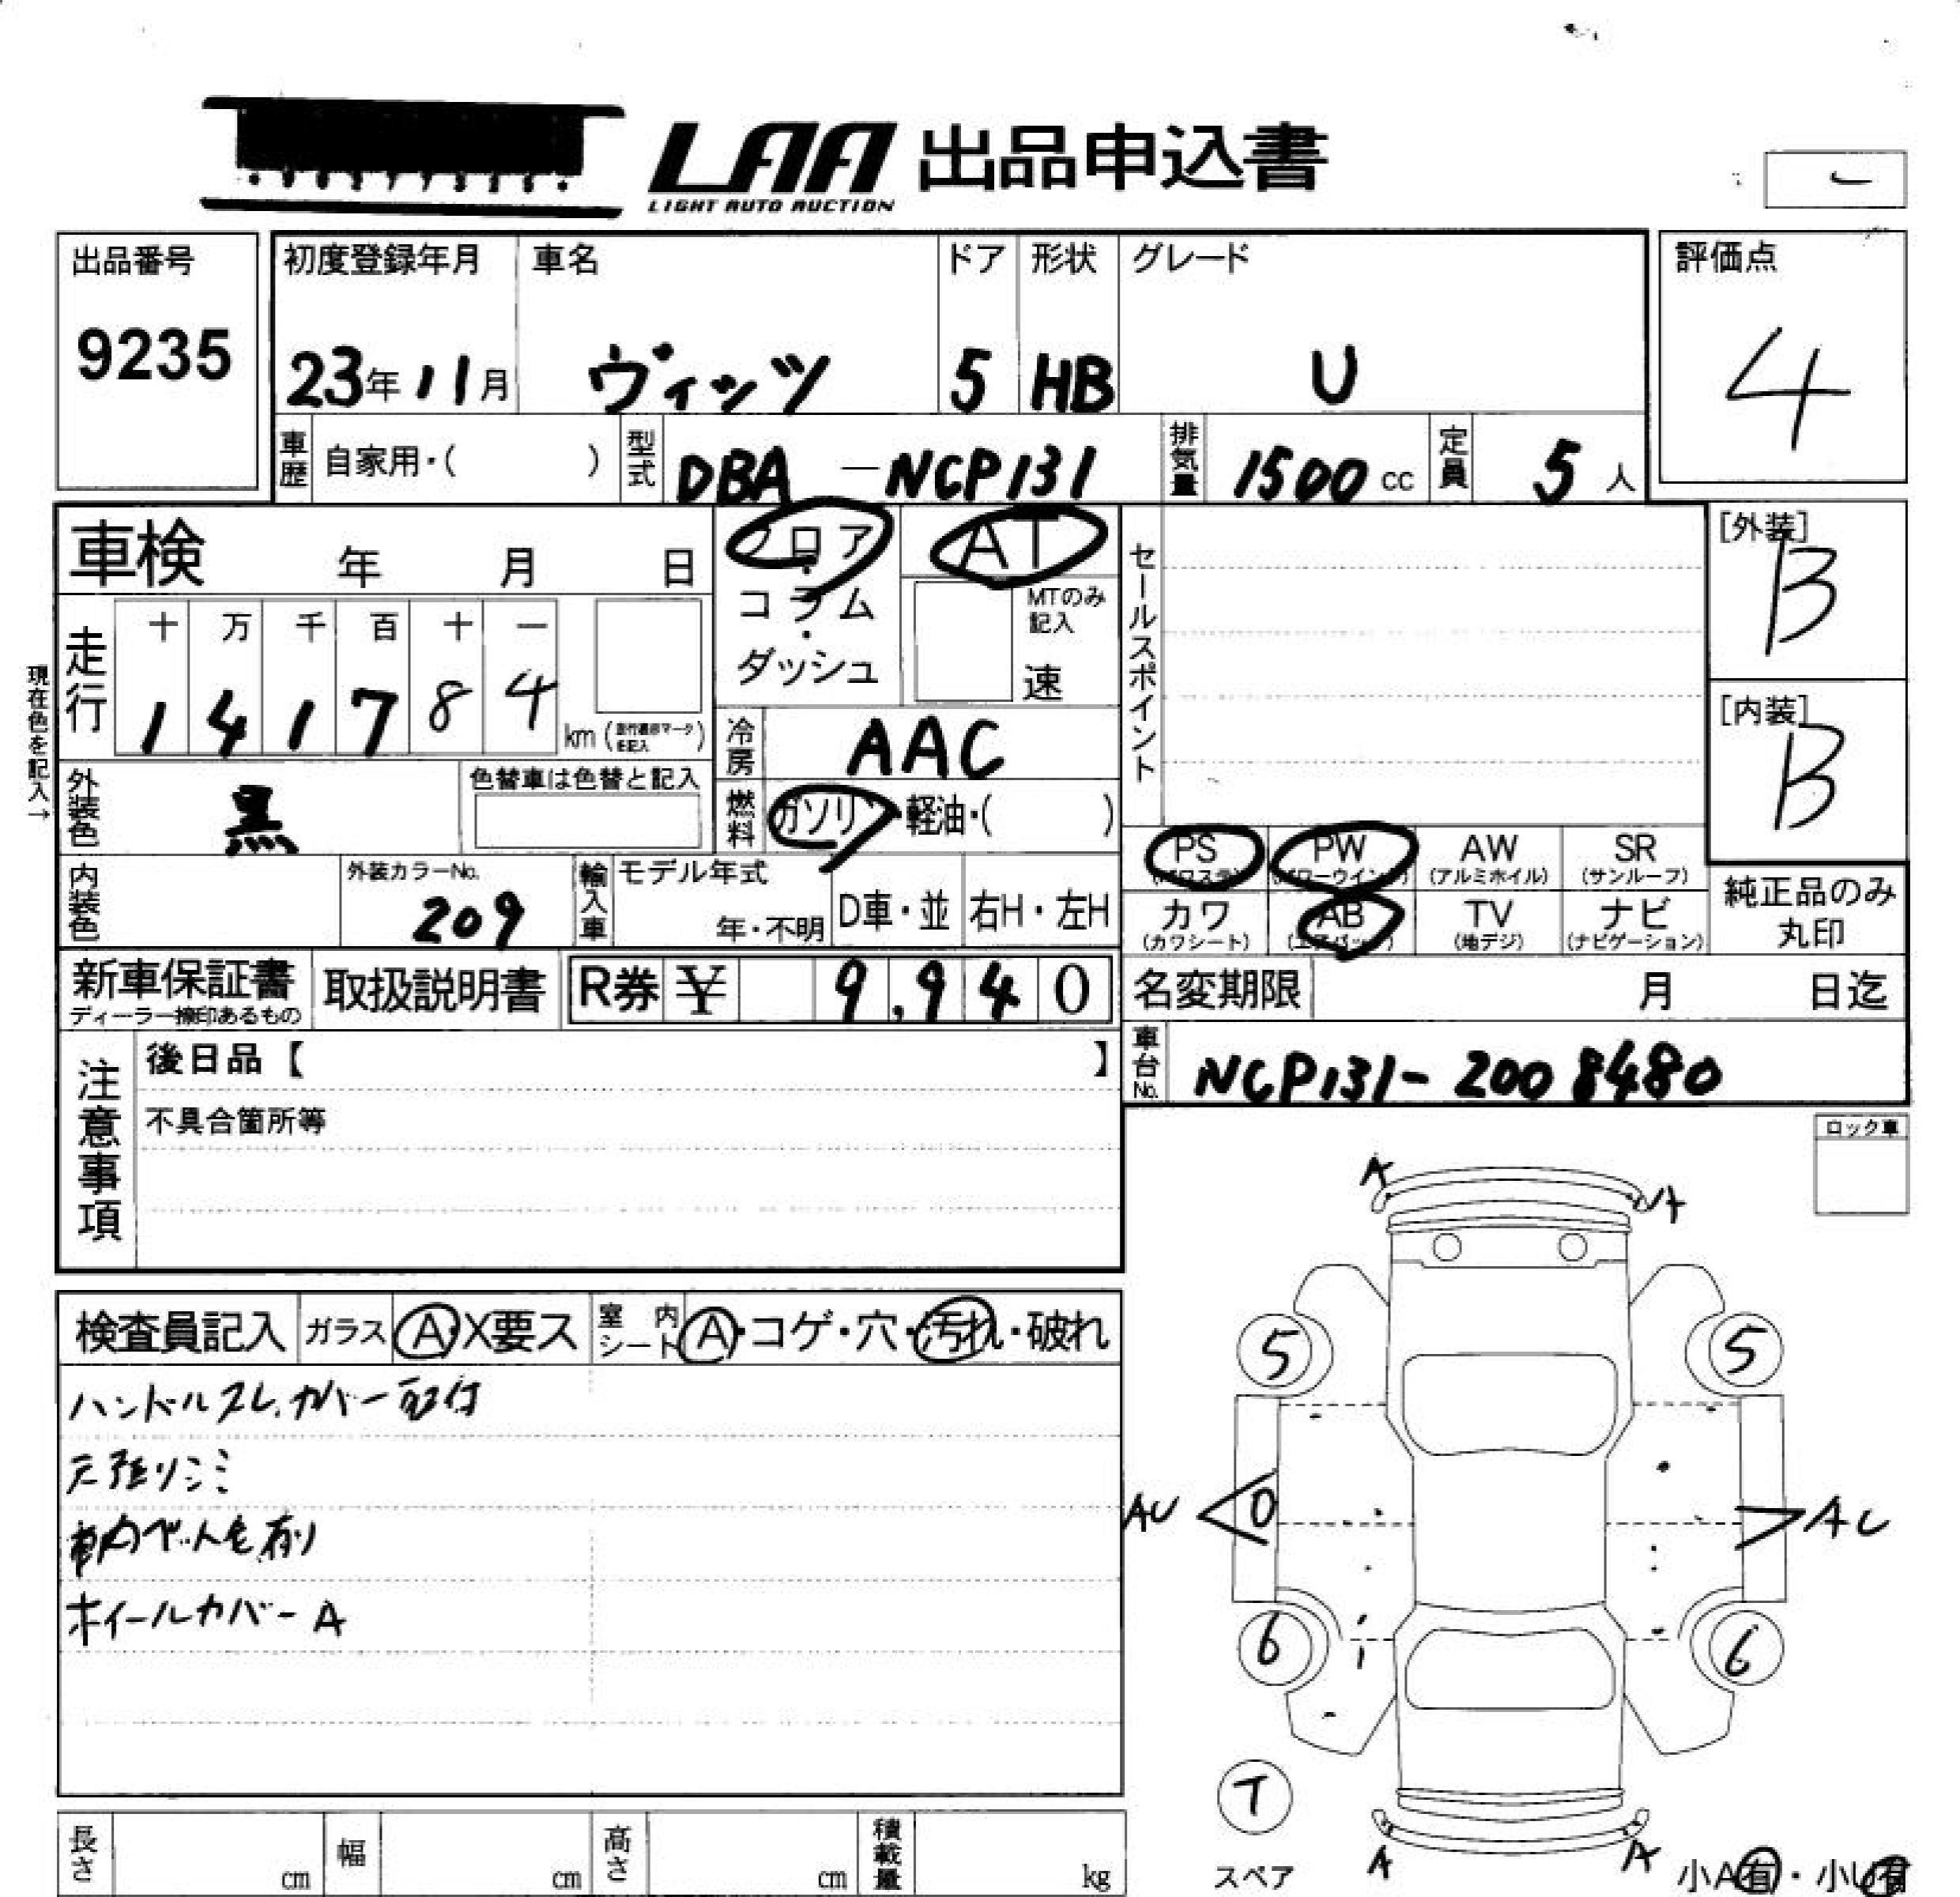 LAA 出品申込書
LIGHT AUTO AUCTION
出品番号
9235
初度登録年月
23年11月
車名
ヴィッツ
ドア
5
形状
HB
グレード
U
評価点
4
車歴 自家用・( )
型式 DBA-NCP131
排気量 1500cc
定員 5人
車検 年 月 日
フロア・コラム・ダッシュ
AT
MTのみ記入
速
セールスポイント
[外装]
B
[内装]
B
現在色を記入→
走行
十 万 千 百 十 一
1 4 1 7 8 4 km
冷房 AAC
外装色 黒
色替車は色替と記入
燃料 ガソリン・軽油・( )
PS PW AW SR
(パワステ) (パワーウインド) (アルミホイル) (サンルーフ)
カワ AB TV ナビ
(カワシート) (エアバッグ) (地デジ) (ナビゲーション)
純正品のみ
丸印
内装色
外装カラーNo.
209
輸入車
モデル年式
年・不明
D車・並
右H・左H
新車保証書
ディーラー捺印あるもの
取扱説明書
R券 ¥ 9,940
名変期限 月 日迄
車台No. NCP131-2008480
注意事項
後日品【 】
不具合箇所等
ロック車
検査員記入
ガラス A・X要ス
室内シート A・コゲ・穴・汚れ・破れ
ハンドルスレ、カバー取付
天張リシミ
車内ペット毛有り
ホイールカバーA
A A
5 5
AU 0 AU
6 6
T
スペア
A A
小A有・小U有
長さ cm
幅 cm
高さ cm
積載量 kg